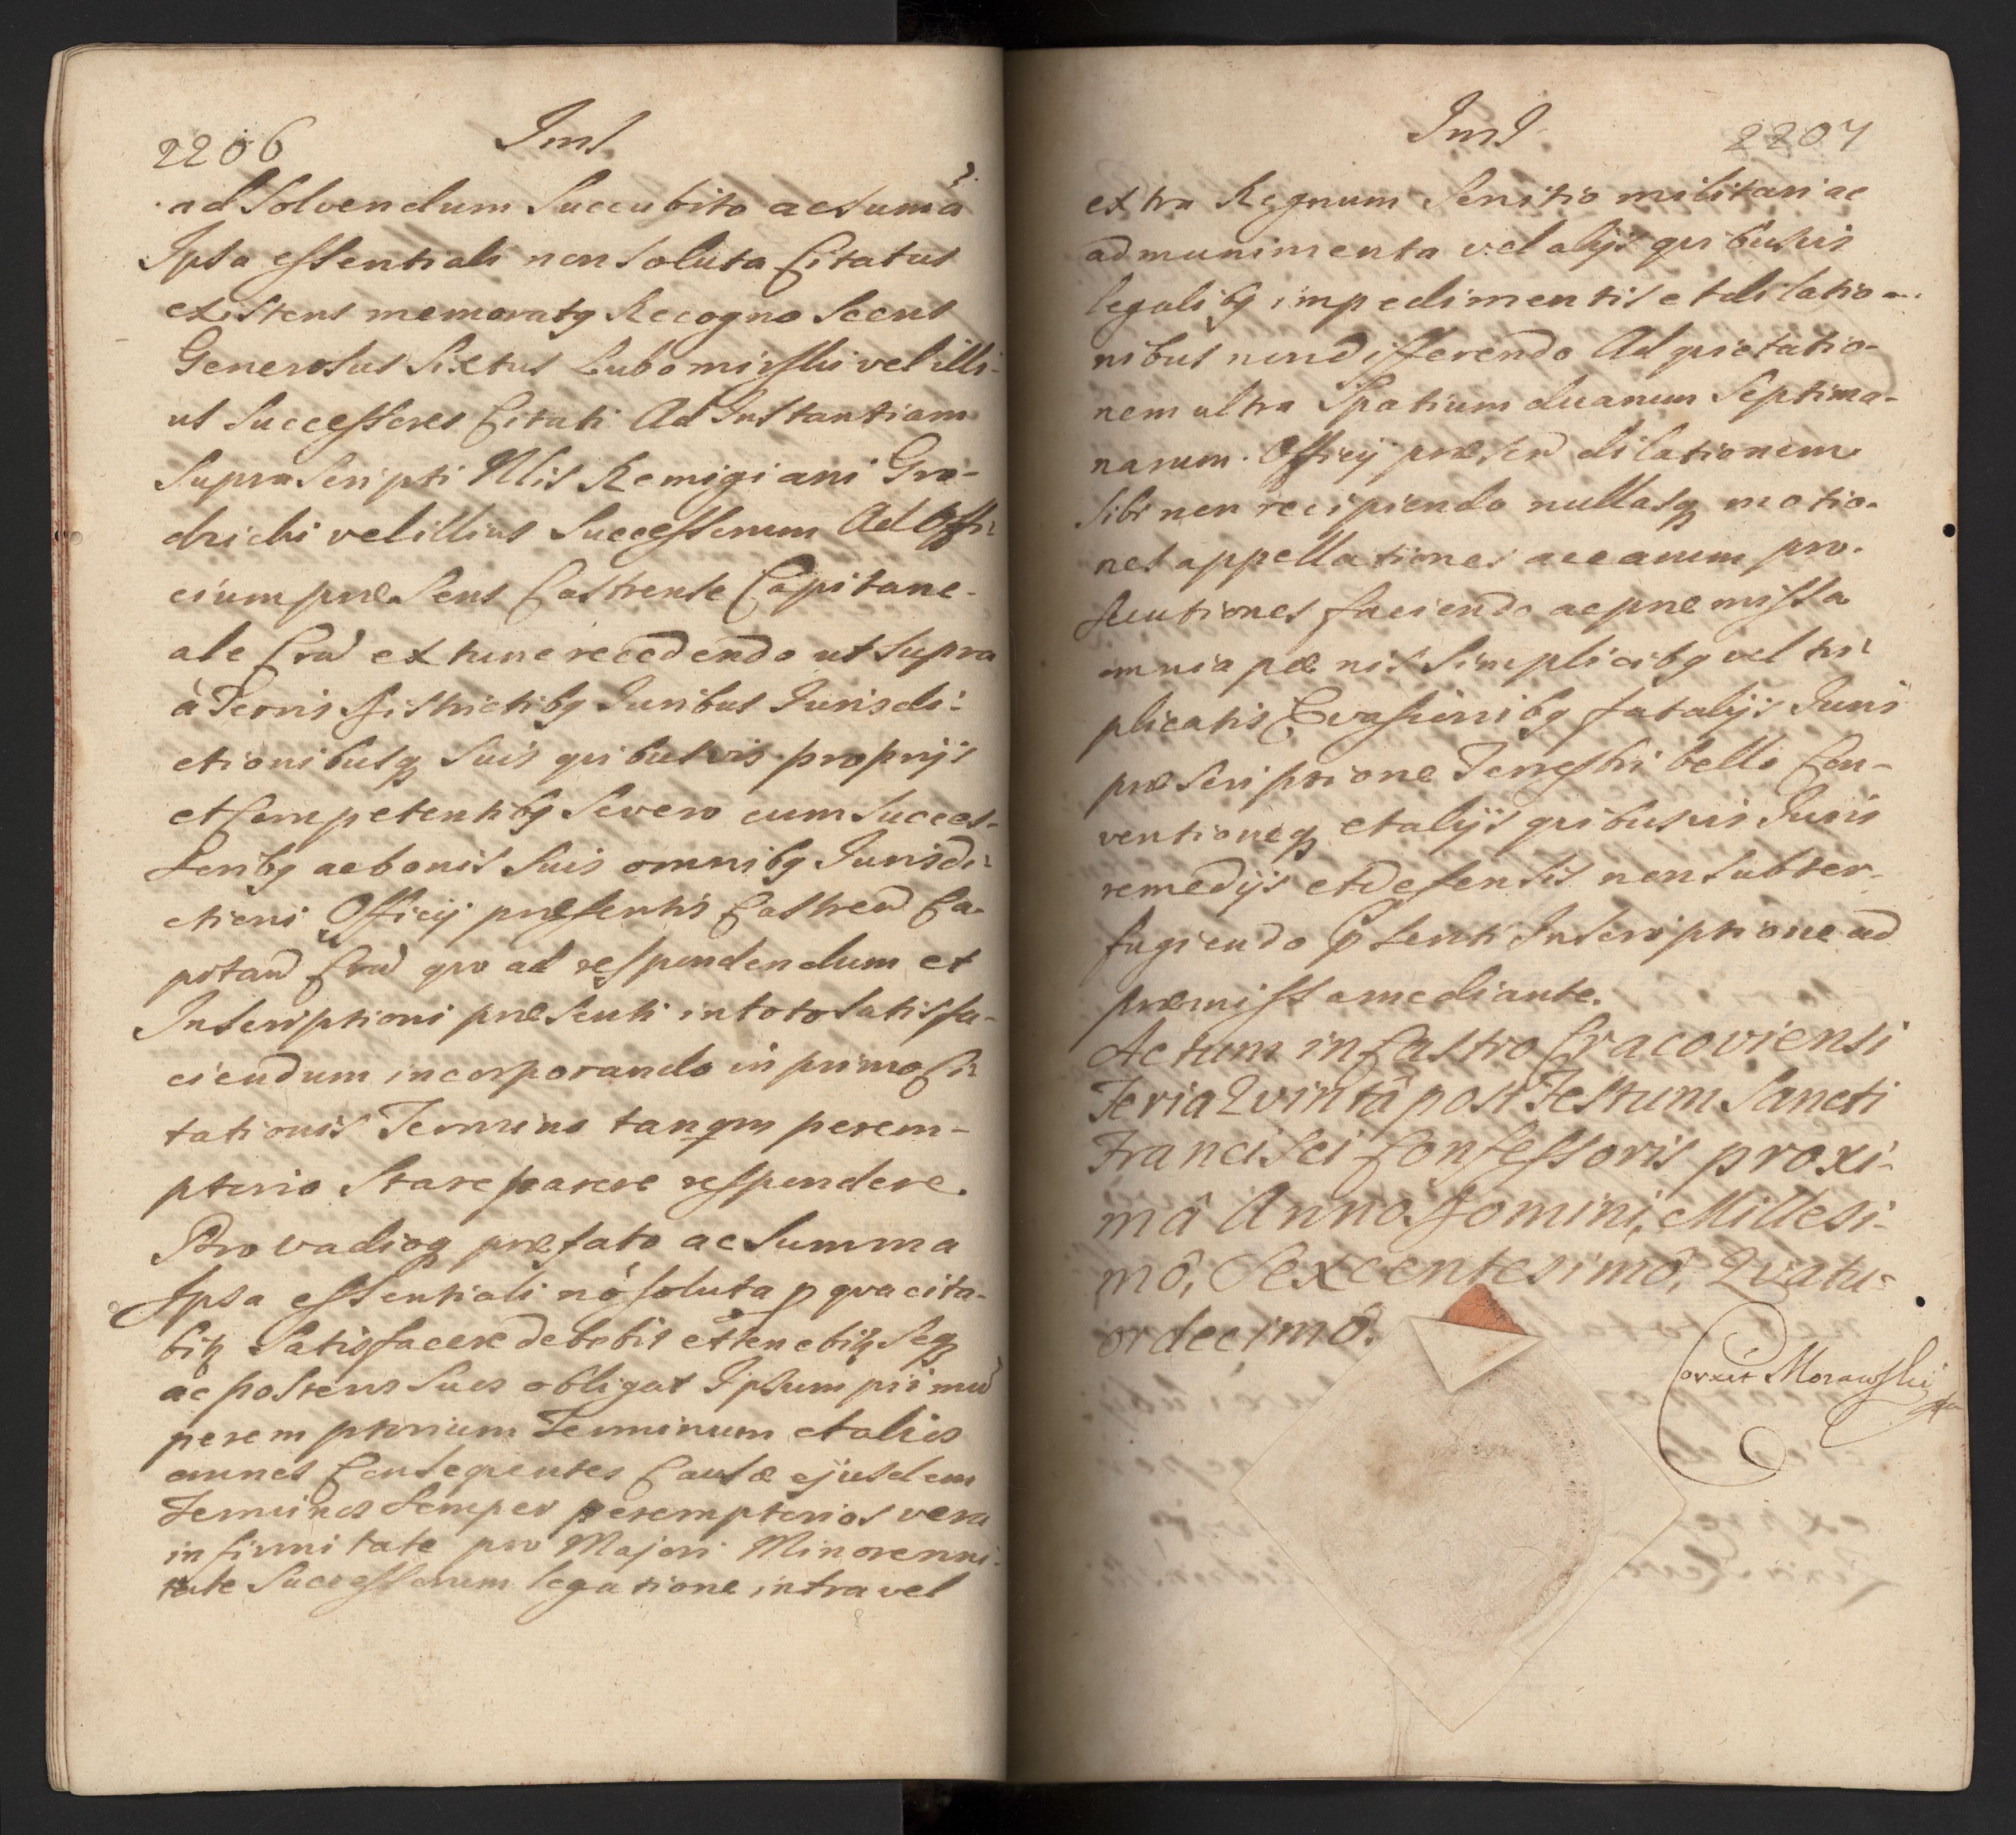 2206
Ins
ad Solvendum Succubito ac suma
Ipsa essentiali non soluta Citatus
existens memoratq Recogno Scens
Generosus Sixtus Lubomirski vel illi-
us Successores Citati Ad Instantiam
Suprascripti Nlis Remigiani Gro-
dzicki vel illius Successorum Ad Offi-
cium præsens Castrense Capitane-
ale Crad ex tunc recedendo ut supra
à Terris Districtibq Juribus Jurisdi-
ctionibusq Suis quibusvis proprijs
et Competentibq Se vero cum Succes-
soribq ac bonis Suis omnibq Jurisdi-
ctioni Officij præsentis Castren Ca-
pitan Crad quo ad respondendum et
Inscriptioni præsenti in toto Satisfa-
ciendum incorporando in primo Ci-
tationis Termino tanqm perem-
ptorio Stare parere respondere.
Pro vadioq præfato ac Summa
Ipsa essentiali nó soluta p qua cita-
bitq Satisfacere debebit et tenebitq Seq
ac posteros Suos obligat Ipsum primu
peremptorium Terminum et alios
omnes Consequentes Causæ ejusdem
Terminos Semper peremptorios vera
infirmitate pro Majori Minorenni-
tate Successorum legatione intra vel
Ins
2207
extra Regnum Servitio militari ac
ad munimenta vel alijs quibusvis
legalibq impedimentis et dilatio-
nibus non differendo Ad quietatio-
nem ultra Spatium duarum Septima-
narum. Officij præsen dilationem
Sibi non recipiendo nullasq motio-
nes appellationes ac earum pro-
secutiones faciendo ac præmissa
omnia pœnis Simplicibq vel tri-
plicatis Evasionibq fatalijs Juris
præscriptione Terrestri bello Con-
ventioneq et alijs quibusvis Juris
remedijs et defensis non subter-
fugiendo p̃senti Inscriptione ad
præmissa mediante.
Actum in Castro Cracoviensi
Feria Qvintâ post Festum Sancti
Francisci Confessoris proxi-
mâ Anno Domini, Millesi-
mô, Sexcentesimô, Qvatu-
ordecimô.
Correxit Morawski